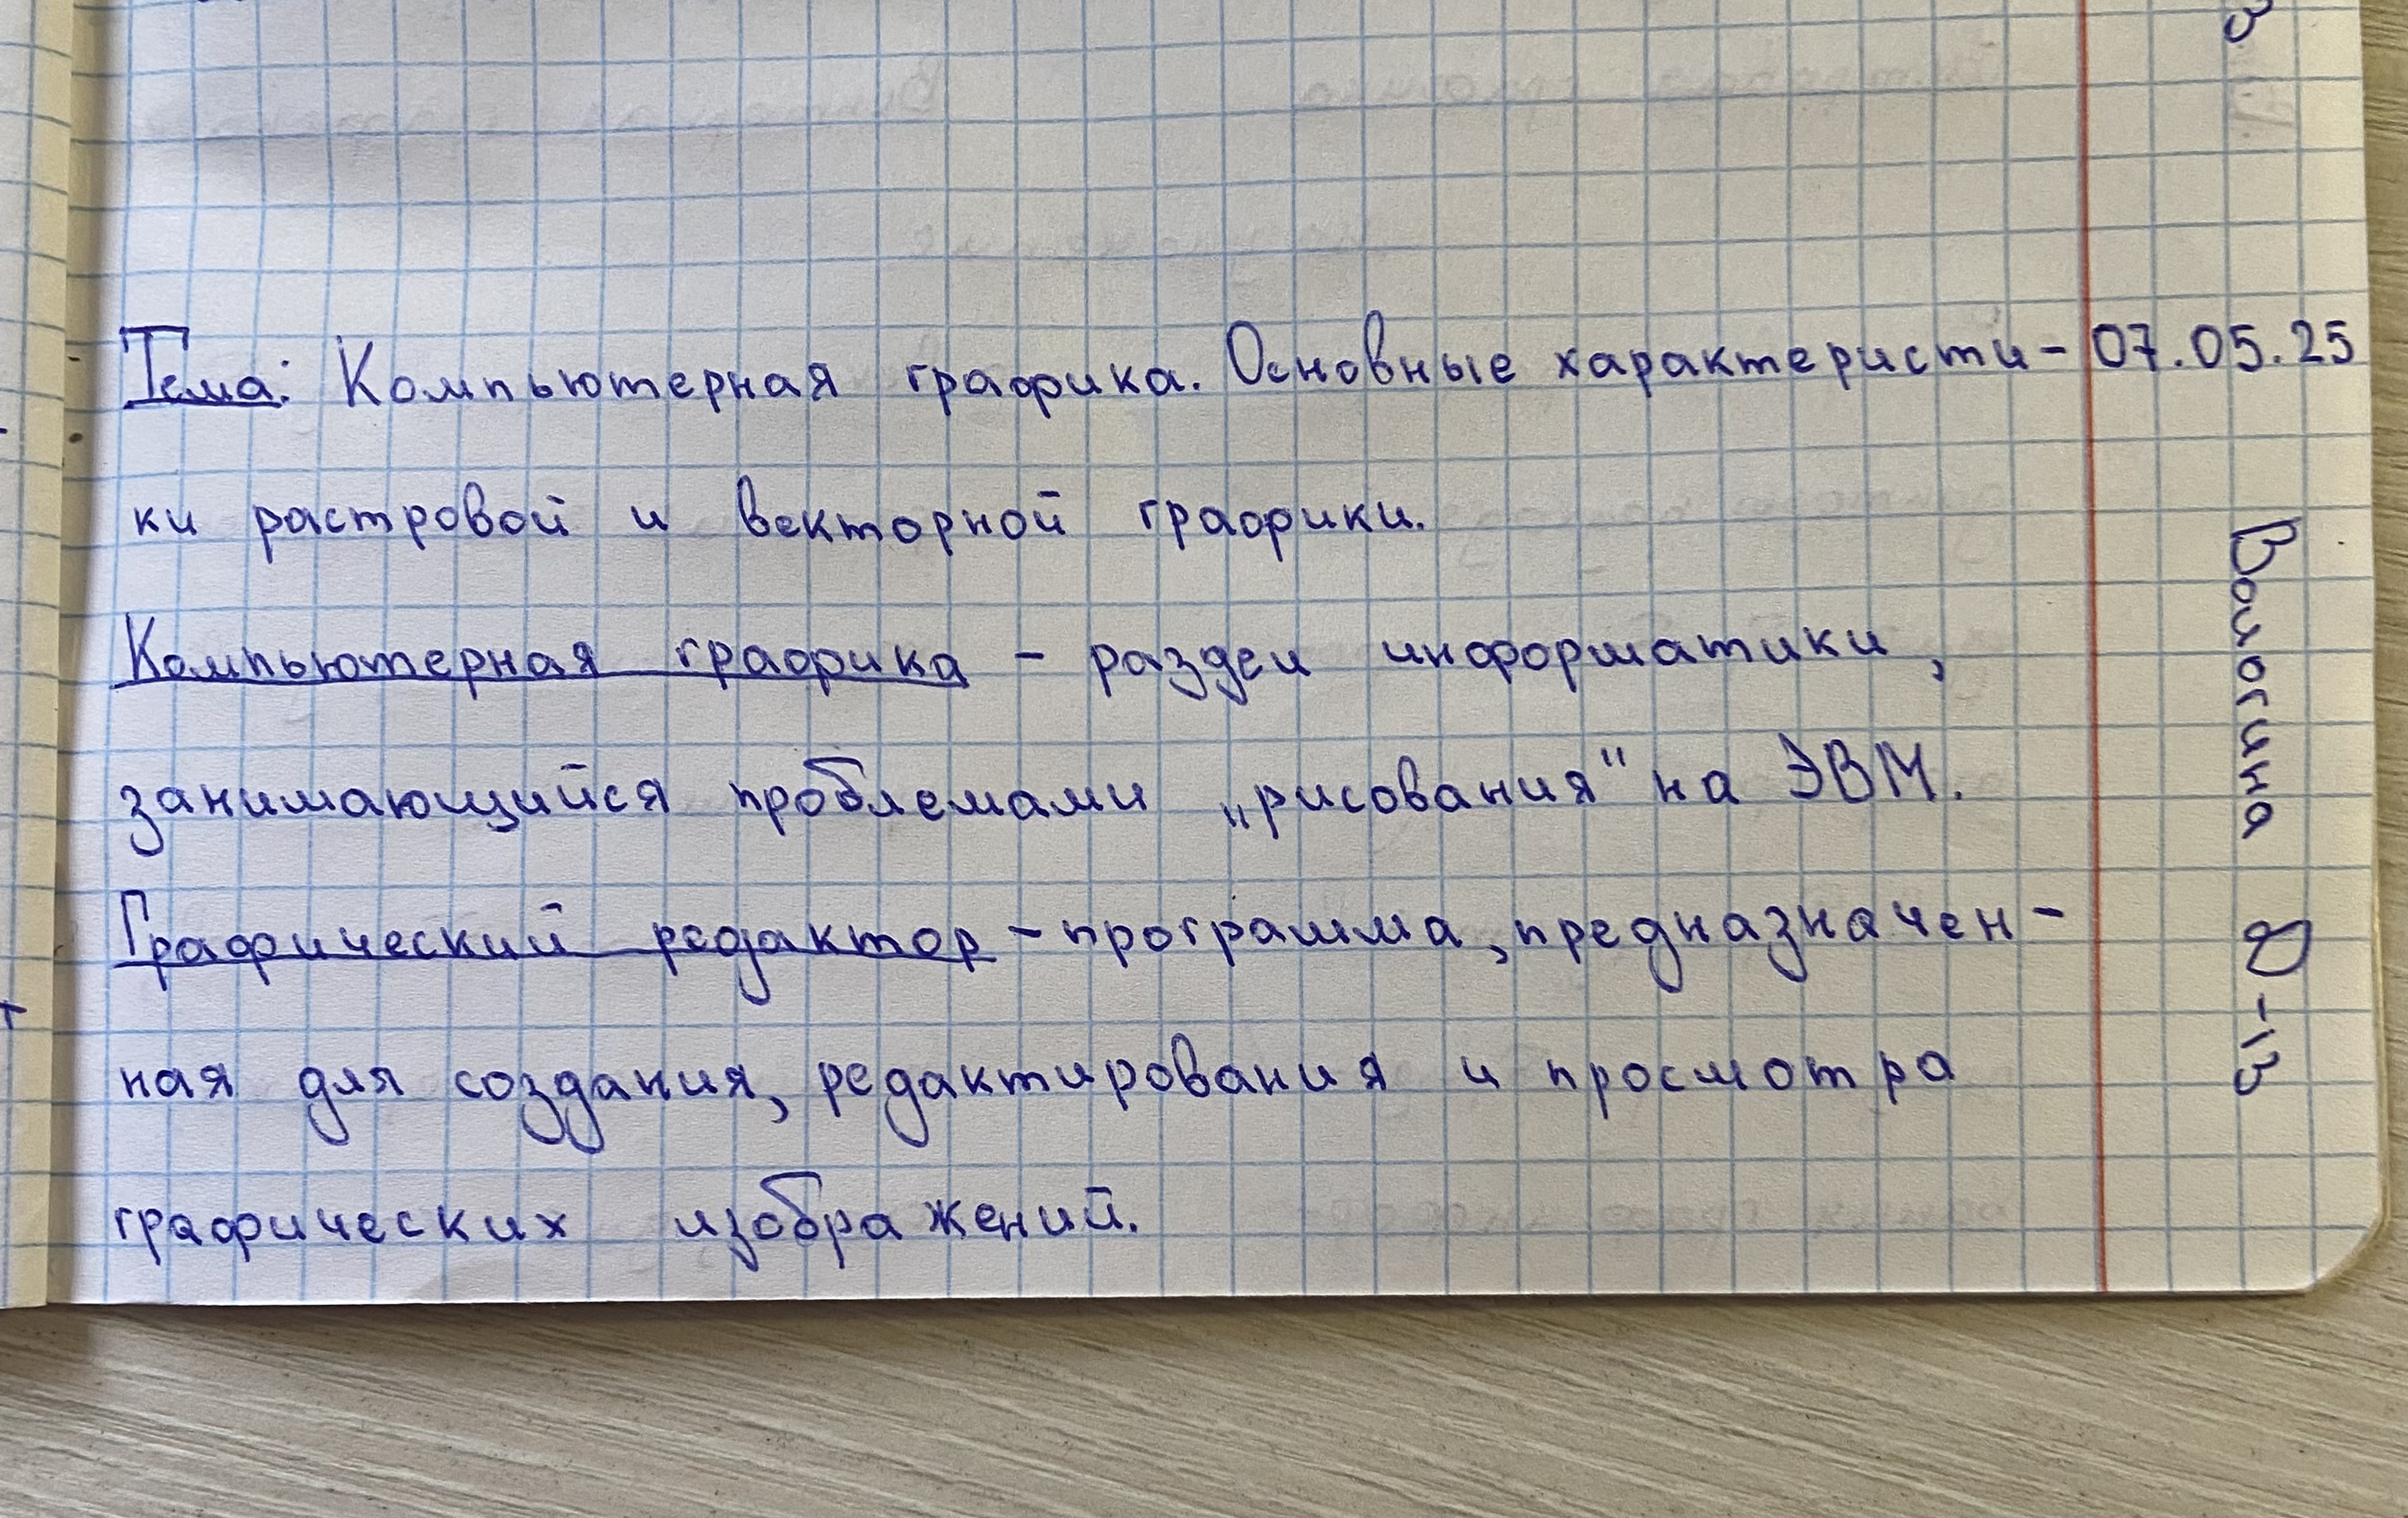 Тема: Компьютерная графика. Основные характеристи- 07.05.25
ки растровой и векторной графики.
Компьютерная графика - раздел информатики,
занимающийся проблемами „рисования" на ЭВМ.
Графический редактор - программа, предназначен-
ная для создания, редактирования и просмотра
графических изображений.